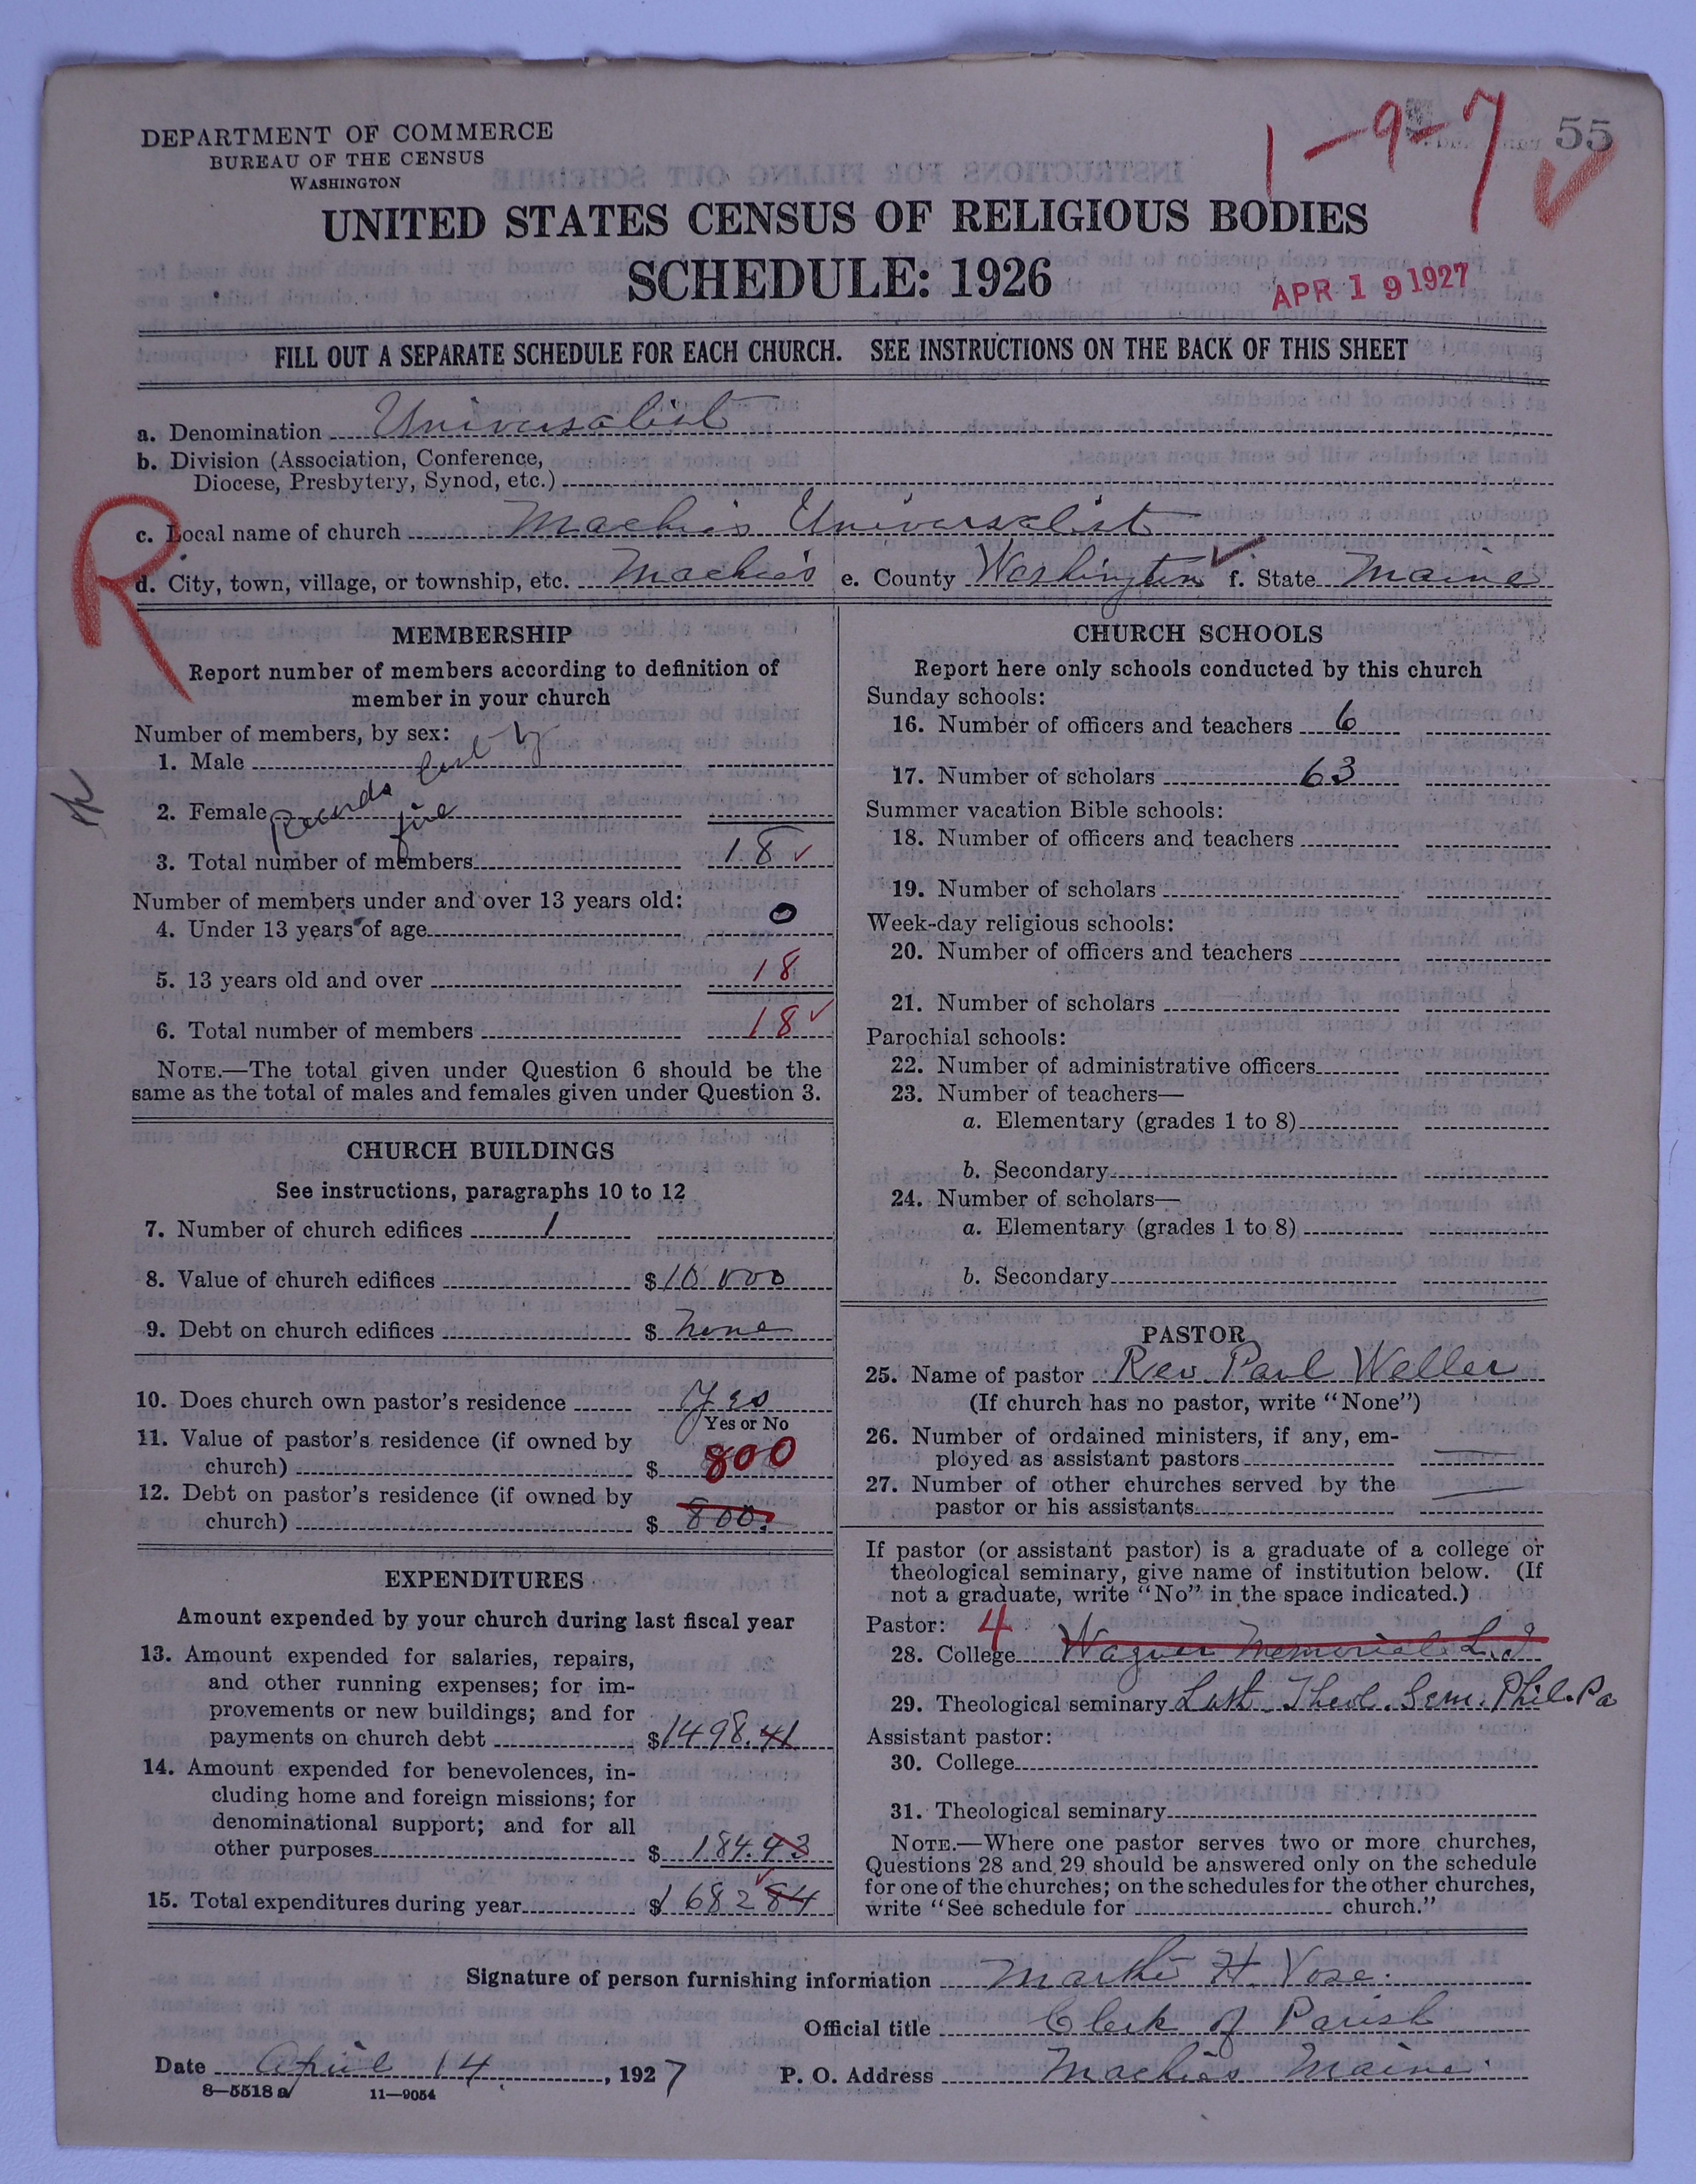 DEPARTMENT OF COMMERCE
BUREAU OF THE CENSUS
WASHINGTON
1-9-7
55
UNITED STATES CENSUS OF RELIGIOUS BODIES
SCHEDULE: 1926
APR 19 1927
FILL OUT A SEPARATE SCHEDULE FOR EACH CHURCH. SEE INSTRUCTIONS ON THE BACK OF THIS SHEET
a. Denomination Universalist
b. Division (Association, Conference,
Diocese, Presbytery, Synod, etc.)
R
c. Local name of church Machias Universalist
d. City, town, village, or township, etc. Machias e. County Washington f. State Maine
MEMBERSHIP
Report number of members according to definition of
member in your church
Number of members, by sex:
1. Male
2. Female
Records lost by
fire
3. Total number of members 18
Number of members under and over 13 years old:
4. Under 13 years of age 0
5. 13 years old and over 18
6. Total number of members 18
NOTE.—The total given under Question 6 should be the
same as the total of males and females given under Question 3.
CHURCH BUILDINGS
See instructions, paragraphs 10 to 12
7. Number of church edifices 1
8. Value of church edifices $10000
9. Debt on church edifices $ None
10. Does church own pastor's residence Yes
Yes or No
11. Value of pastor's residence (if owned by
church) $ 800
12. Debt on pastor's residence (if owned by
church) $ 800.
EXPENDITURES
Amount expended by your church during last fiscal year
13. Amount expended for salaries, repairs,
and other running expenses; for im-
provements or new buildings; and for
payments on church debt $1498.41
14. Amount expended for benevolences, in-
cluding home and foreign missions; for
denominational support; and for all
other purposes $ 184.43
15. Total expenditures during year $1682 84
CHURCH SCHOOLS
Report here only schools conducted by this church
Sunday schools:
16. Number of officers and teachers 6
17. Number of scholars 63
Summer vacation Bible schools:
18. Number of officers and teachers
19. Number of scholars
Week-day religious schools:
20. Number of officers and teachers
21. Number of scholars
Parochial schools:
22. Number of administrative officers
23. Number of teachers—
a. Elementary (grades 1 to 8)
b. Secondary
24. Number of scholars—
a. Elementary (grades 1 to 8)
b. Secondary
PASTOR
25. Name of pastor Rev. Paul Weller
(If church has no pastor, write "None")
26. Number of ordained ministers, if any, em-
ployed as assistant pastors
27. Number of other churches served by the
pastor or his assistants
If pastor (or assistant pastor) is a graduate of a college or
theological seminary, give name of institution below. (If
not a graduate, write "No" in the space indicated.)
Pastor: 4
28. College Wagner Memorial L.I
29. Theological seminary Luth. Theol. Sem. Phil. Pa
Assistant pastor:
30. College
31. Theological seminary
NOTE.—Where one pastor serves two or more churches,
Questions 28 and 29 should be answered only on the schedule
for one of the churches; on the schedules for the other churches,
write "See schedule for church."
Signature of person furnishing information H. Vose.
Official title Clerk of Parish
Date April 14, 1927 P. O. Address Machias Maine
8—5518 a 11—9054